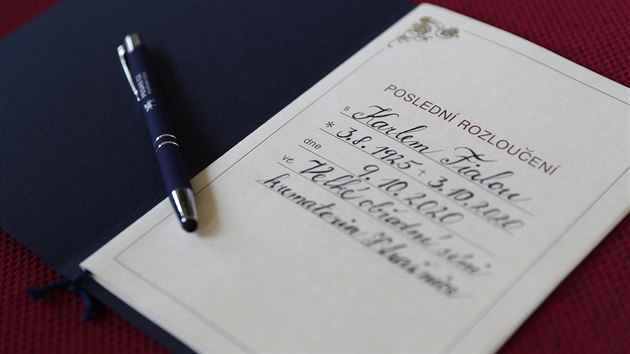 POSLEDNÍ ROZLOUČENÍ
s Karlem Fialou
* 3.8.1925 + 3.10.2020
dne 9.10.2020
ve Velké obřadní síni
krematoria Strašnice